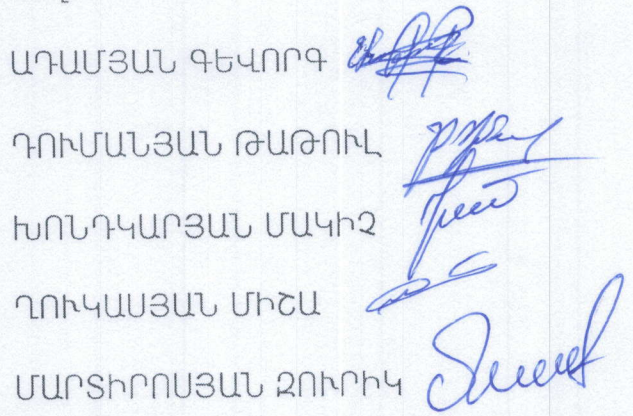 ԱԴԱՄՅԱՆ ԳԵՎՈՐԳ
ԴՈՒՄԱՆՅԱՆ ԹԱԹՈՒԼ
ԽՈՆԴԿԱՐՅԱՆ ՄԱԿԻՉ
ՂՈՒԿԱՍՅԱՆ ՄԻՇԱ
ՄԱՐՏԻՐՈՍՅԱՆ ԶՈՒՐԻԿ